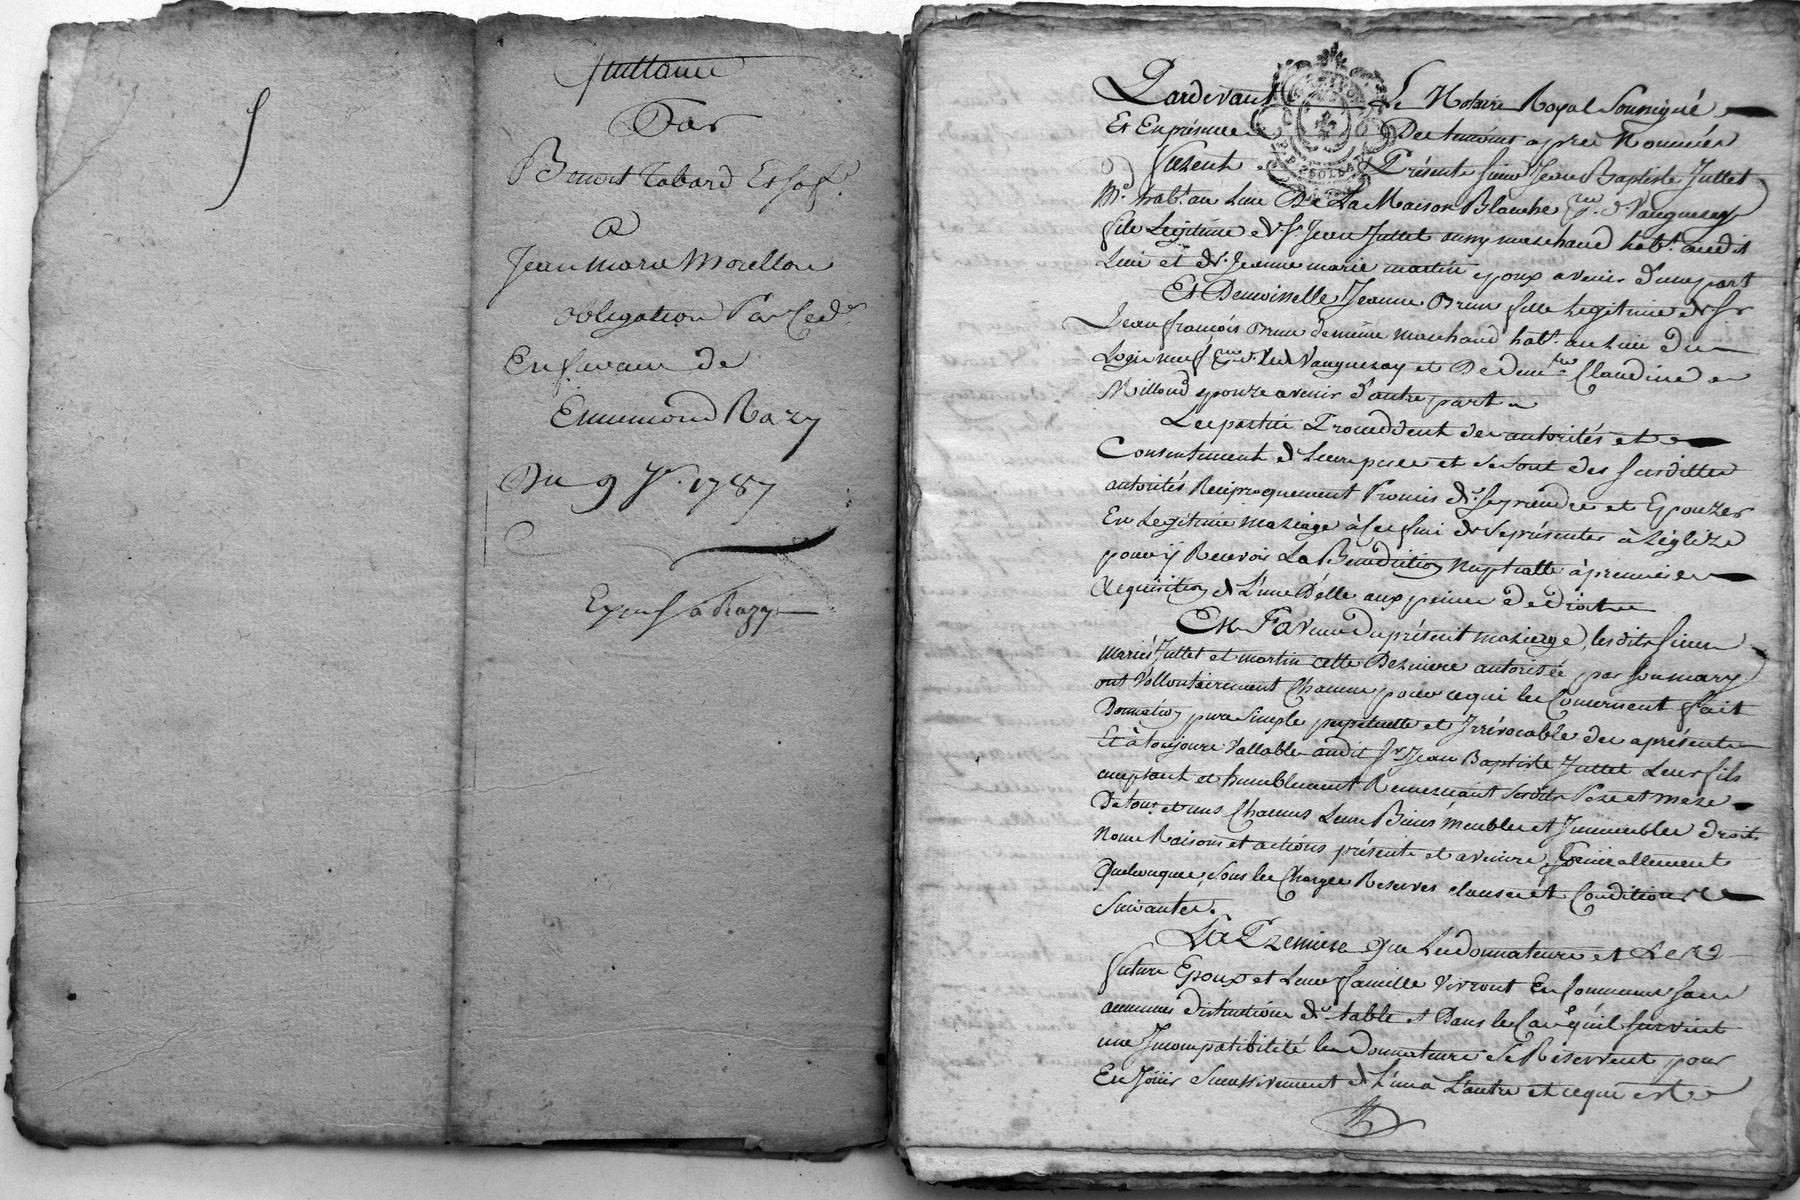 Quittance
Par
Benoit Tabard Et sa f.e
a
Jean Marie Morellon
obligation Par led.
En faveur de
Ennemond Razy
Du 9 1787
Exped a Razy
Pardevant Le Notaire Royal Soussigné
Et En présence Des temoins apres Nommés
furent Présents sieur Jean Baptiste Juttet
M.d hab.t au Lieu De La Maison Blanche Vaugneray
fils Legitime de s.r Jean Juttet aussy marchand hab.t audit
Lieu et de Jeanne marie martin epoux avenir d'une part
Et Demoiselle Jeanne Brun fille Legitime de Sr
Jean françois Brun de même marchand hab.t au Lieu du
Logis neuf Vaugneray et De Claudine
Milloud epouze avenir d'autre part
Les parties Proceddent des autorités et
Consentement de Leurs peres et se sont des susdittes
autorités Reciproquement Promis de se prendre et Epouzer
En Legitime Mariage à Ces fins de se présenter à L'églize
pour ÿ Recevoir La Benediction Nuptialle à premiere
Requisition de L'une D'elle aux peines de droit
En Faveur du présent mariage, lesdits sieur
mariés Juttet et martin cette Derniere autorisée par son mary
ont Vollontairement Chacun pour ce qui les Concernent fait
Donnation pure Simple perpetuelle et Irrévocable des aprésent
Et à toujours Vallable audit Sr Jean Baptiste Juttet Leur fils
acceptant et humblement Remerciant sesdits Pere et Mere
De tous et uns Chacuns Leurs Biens Meubles et Immeubles droits
Noms Raisons et actions présents et avenirs Generallement
Quelconques, sous les Charges Reserves clauses et Conditions
Suivantes.
La Premiere que Les donnateurs et Les
future Epoux et Leur famille Vivront En Commun sans
aucunes distinction de table et Dans le Cas qu'il survint
une Incompatibilité les Donnateurs se Réservent pour
En Jouir Successivement de L'un a L'autre et ce qui est